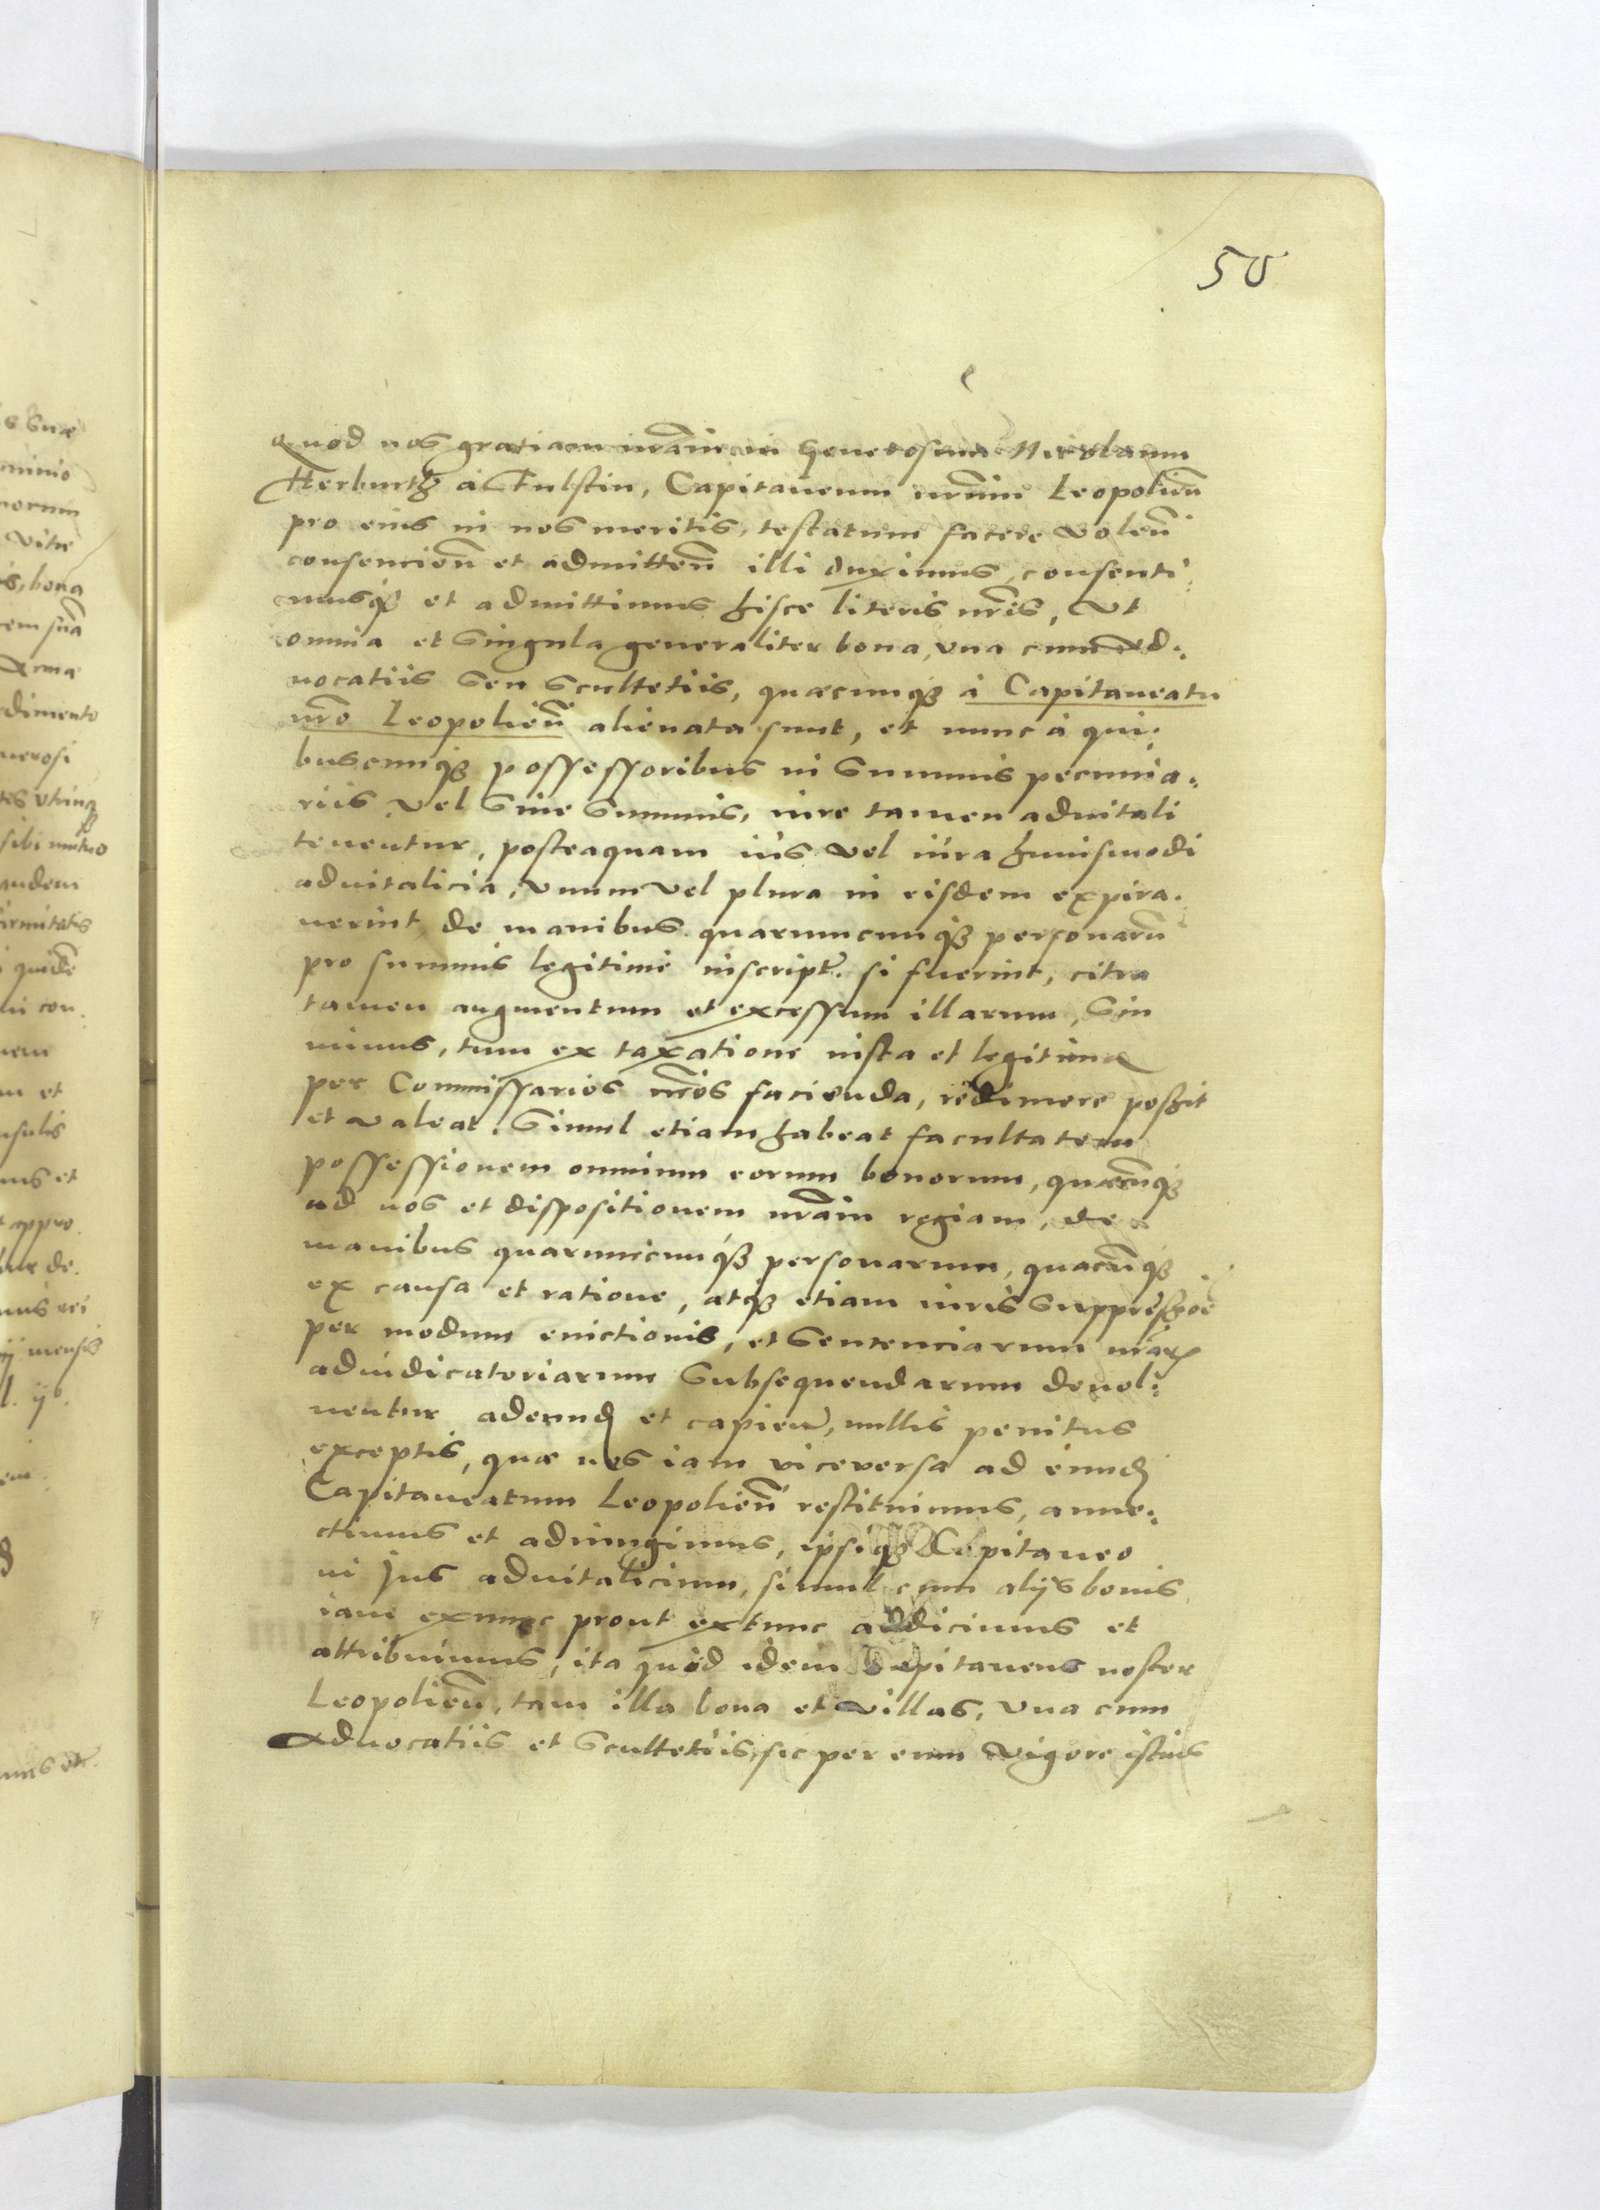 50
quod nos gratiam nr̃am in Generosum Nicolaum
Herburth à Fulstin, Capitaneum nr̃um Leopolień
pro eius in nos meritis, testatum facere voleń
consencień et admitteń illi duximus, consenti
musq3 et admittimus hisce literis nr̃is, Vt
omnia et singula generaliter bona, vna cum Ad:
uocatiis seu scultetiis, quæcunq3 à Capitaneatu
nr̃o Leopolień alienata sunt, et nunc à qui:
buscunq3 possessoribus in summis pecunia:
riis vel sine summis, iure tamen aduitali
tenentur, posteaquam ius vel iura huiusmodi
aduitalicia, vnum vel plura in eisdem expira:
uerint, de manibus quarumcunq3 personarũ
pro summis legitime inscript. si fuerint, citra
tamen augmentum et excessum illarum, Sin
minus, tum ex taxatione iusta et legitima
per Commissarios nr̃os facienda, redimere possit
et valeat. Simul etiam habeat facultatem
possessionem omnium eorum bonorum, quæcũq3
ad nos et dispositionem nr̃am regiam, de
manibus quarumcunq3 personarum, quacũq3
ex causa et ratione, atq3 etiam iuris suppressioẽ
per modum euictionis, et sentenciarum nr̃ar
adiudicatoriarum subsequendarum deuol:
uentur adeund et capień, nullis penitus
exceptis, quæ nos iam viceversa ad eund
Capitaneatum Leopolień restituimus, anne:
ctimus et adiungimus, ipsiq3 Capitaneo
in jus aduitalicium, simul cum alijs bonis
iam exnunc prout extunc addicimus et
attribuimus, ita quòd idem Capitaneus noster
Leopolień, tam illa bona et villas, vna cum
Aduocatiis et scultetiis, sic per eum vigore istius